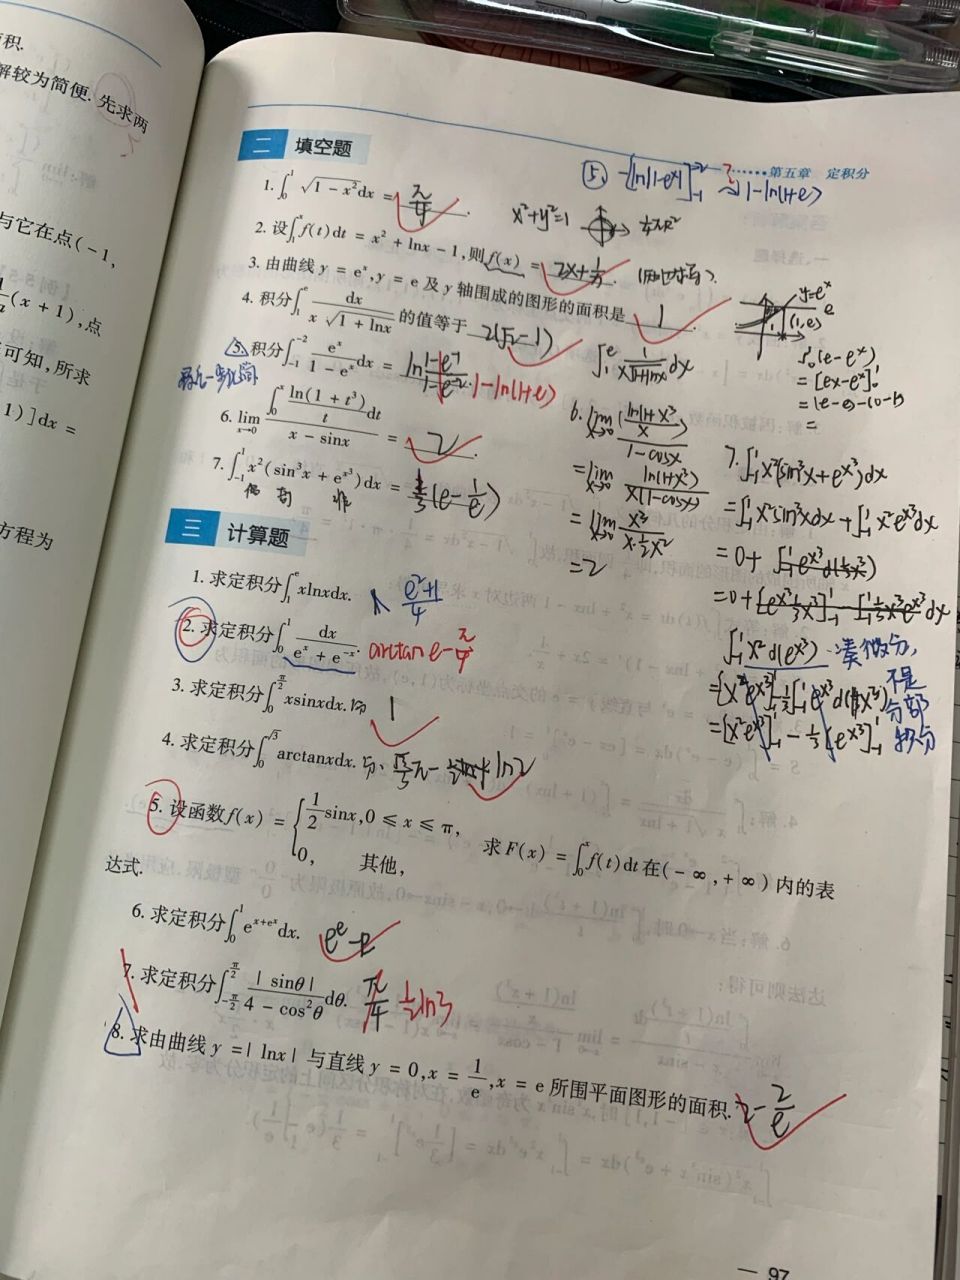 面积.
解较为简便. 先求两
与它在点(-1,
(x+1),点
可知,所求
1)]dx =
方程为
第五章 定积分
二 填空题
⑤. -[ln|1-e^x|]_{-1}^{-2} ? → 1-ln(1+e)
1. ∫_0^1 √(1-x²)dx = π/4.
x²+y²=1 ¼πR²
2. 设∫_1^x f(t)dt = x² + lnx - 1,则f(x) = 2x+1/x.
3. 由曲线 y = e^x, y = e 及 y 轴围成的图形的面积是 1.
y=e^x
e
(1,e)
4. 积分∫_1^e dx/(x√(1+lnx)) 的值等于 2(√2-1)
∫_1^e 1/(x√(1+lnx)) dx
∫_0^1(e-e^x)
= [ex-e^x]_0^1
= (e-e)-(0-1)
=
5. 积分∫_{-1}^{-2} e^x/(1-e^x) dx = ln (1-e^{-1})/(1-e^{-2}). 1-ln(1+e)
最后一步化简
6. lim_{x→0} (∫_0^x ln(1+t³)/t dt)/(x-sinx) = 2.
6. lim_{x→0} (ln(1+x³)/x)/(1-cosx)
= lim_{x→0} ln(1+x³)/(x(1-cosx))
= lim_{x→0} x³/(x·½x²)
= 2
7. ∫_{-1}^1 x²(sin³x + e^{x³})dx = ⅓(e-1/e)
偶 奇 非
7. ∫_{-1}^1 x²(sin³x+e^{x³})dx
= ∫_{-1}^1 x²sin³x dx + ∫_{-1}^1 x²e^{x³}dx
= 0 + ∫_{-1}^1 e^{x³}d(⅓x³)
= 0 + [e^{x³}⅓x³]_{-1}^1 - ∫_{-1}^1 ⅓x³e^{x³}dx
∫_{-1}^1 x²d(e^{x³}) · 凑微分,
不是
分部
积分
= [x²e^{x³}]_{-1}^1 - ⅓∫_{-1}^1 e^{x³}d(x³)
= [x²e^{x³}]_{-1}^1 - ⅓[e^{x³}]_{-1}^1
三 计算题
1. 求定积分∫_1^e xlnxdx. (e²+1)/4
2. 求定积分∫_0^1 dx/(e^x+e^{-x}). arctan e-π/4
3. 求定积分∫_0^{π/2} xsinxdx. 1
4. 求定积分∫_0^{√3} arctanxdx. √3/3 π - ln2
5. 设函数f(x) = { ½sinx, 0≤x≤π, 0, 其他, 求F(x) = ∫_0^x f(t)dt在(-∞,+∞)内的表
达式.
6. 求定积分∫_0^1 e^{x+e^x}dx. e^e-e
7. 求定积分∫_{-π/2}^{π/2} |sinθ|/(4-cos²θ) dθ. π/4 ½ln3
8. 求由曲线 y = |lnx| 与直线 y = 0, x = 1/e, x = e 所围平面图形的面积. 2-2/e
— 97